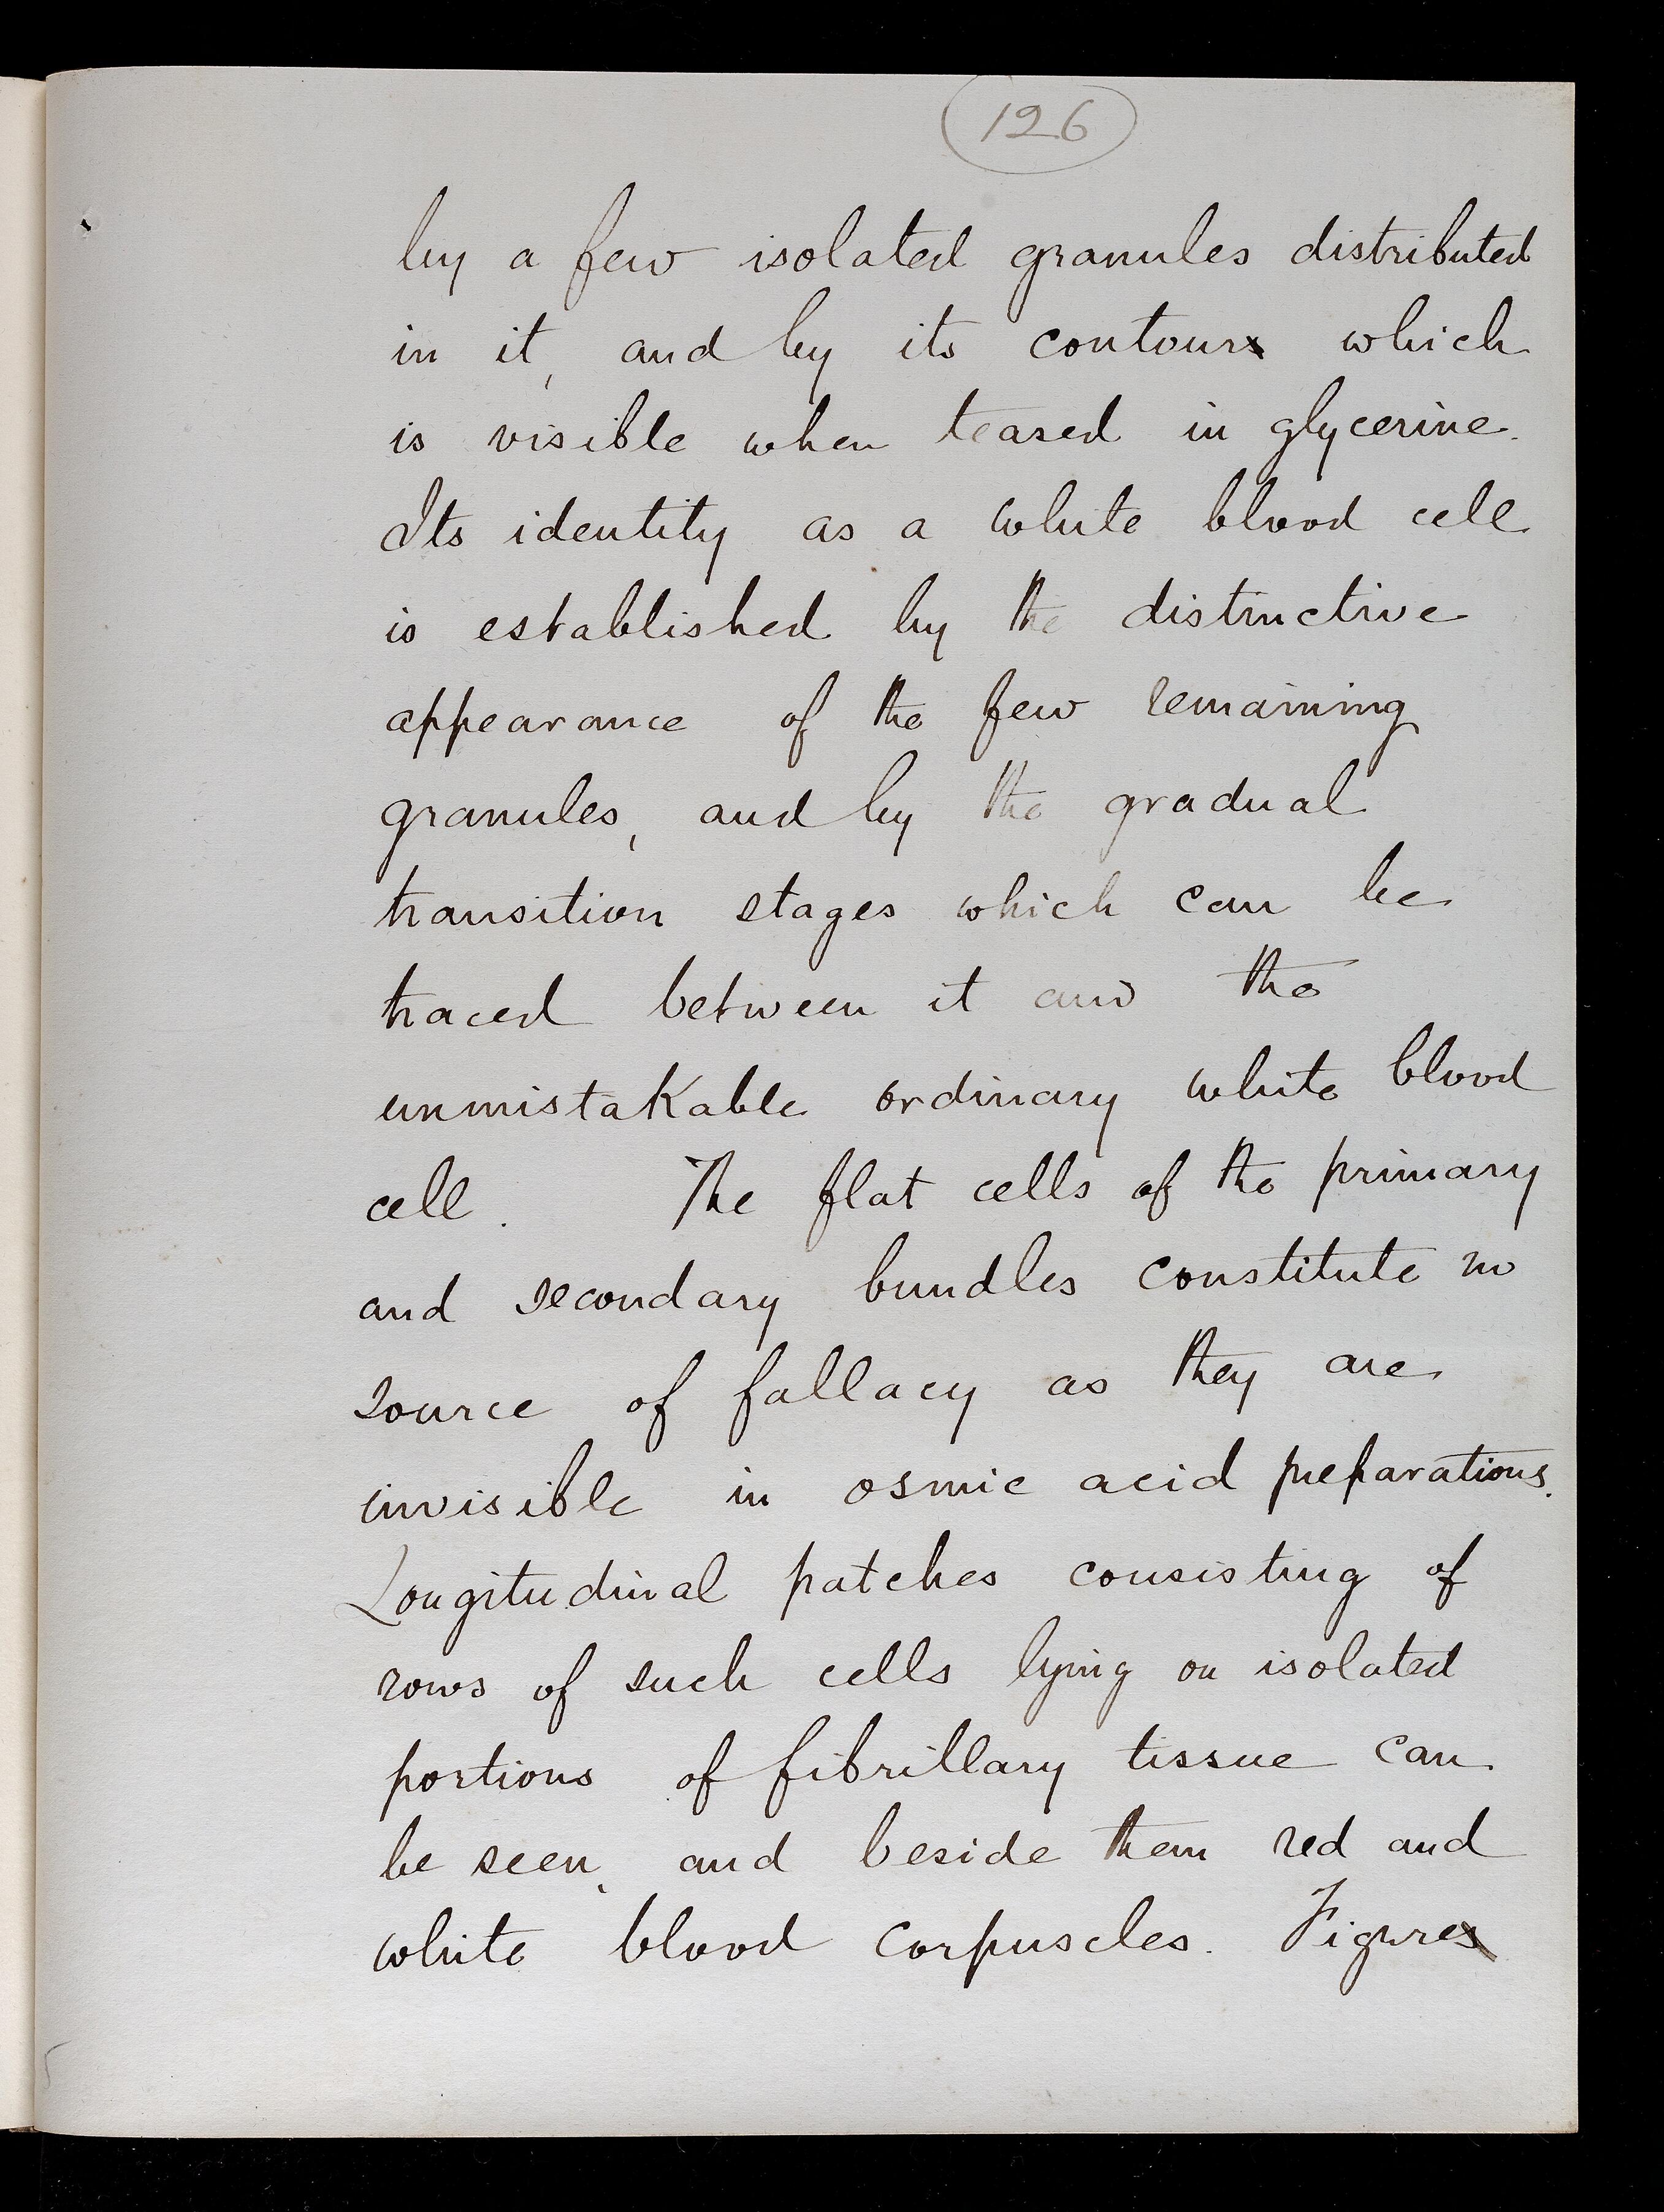 126
by a few isolated granules distributed
in it, and by its contour which
is visible when teased in glycerine.
Its identity as a white blood cell
is established by the distinctive
appearance of the few remaining
granules, and by the gradual
transition stages which can be
traced between it and the
unmistakable ordinary white blood
cell. The flat cells of the primary
and secondary bundles constitute no
source of fallacy as they are
invisible in osmic acid preparations.
Longitudinal patches consisting of
rows of such cells lying on isolated
portions of fibrillary tissue can
be seen, and beside them red and
white blood corpuscles. Figure